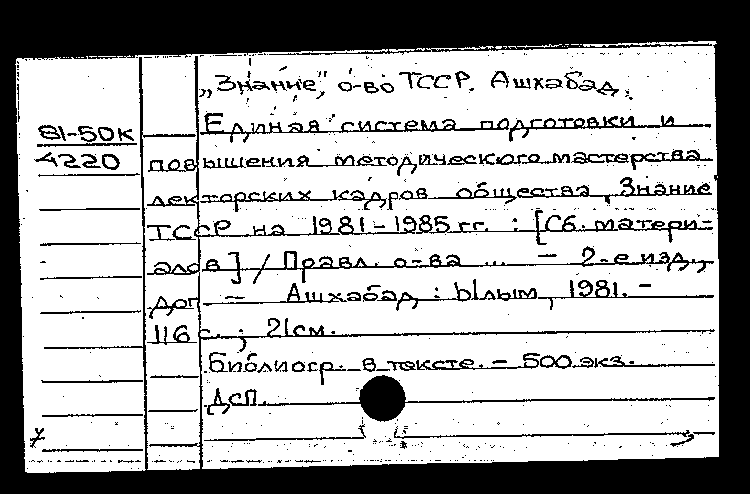 „Знание", о-во ТССР. Ашхабад.
81-50к
4220
Единая система подготовки и
повышения методического мастерства
лекторских кадров общества „Знание"
ТССР на 1981-1985 гг. : [Сб. матери-
алов] / Правл. о-ва ... - 2-е изд.,
доп. - Ашхабад : Ылым, 1981. -
116 с. ; 21 см.
Библиогр. в тексте. - 500 экз.
ДСП.